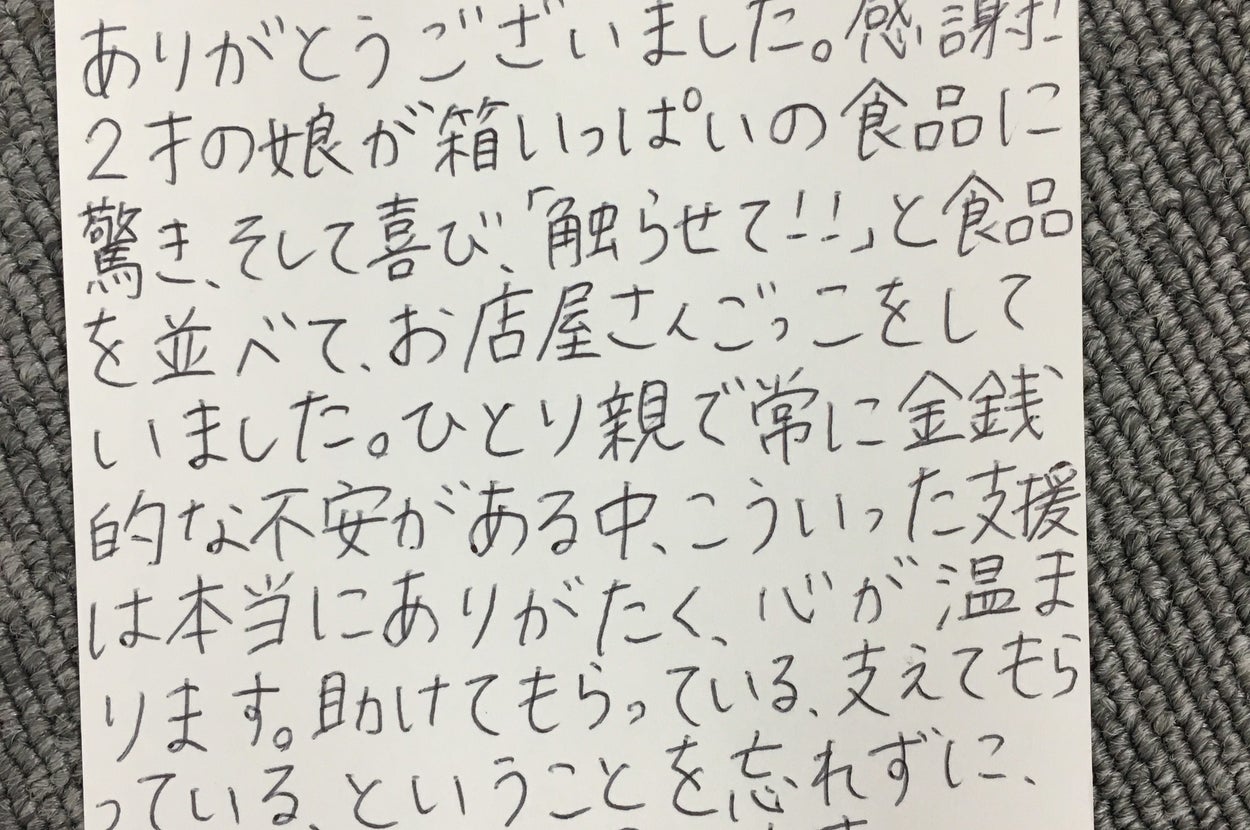 ありがとうございました。感謝!
2才の娘が箱いっぱいの食品に
驚き、そして喜び、「触らせて!!」と食品
を並べて、お店屋さんごっこをして
いました。ひとり親で常に金銭
的な不安がある中、こういった支援
は本当にありがたく、心が温ま
ります。助けてもらっている、支えてもら
っている、ということを忘れずに、